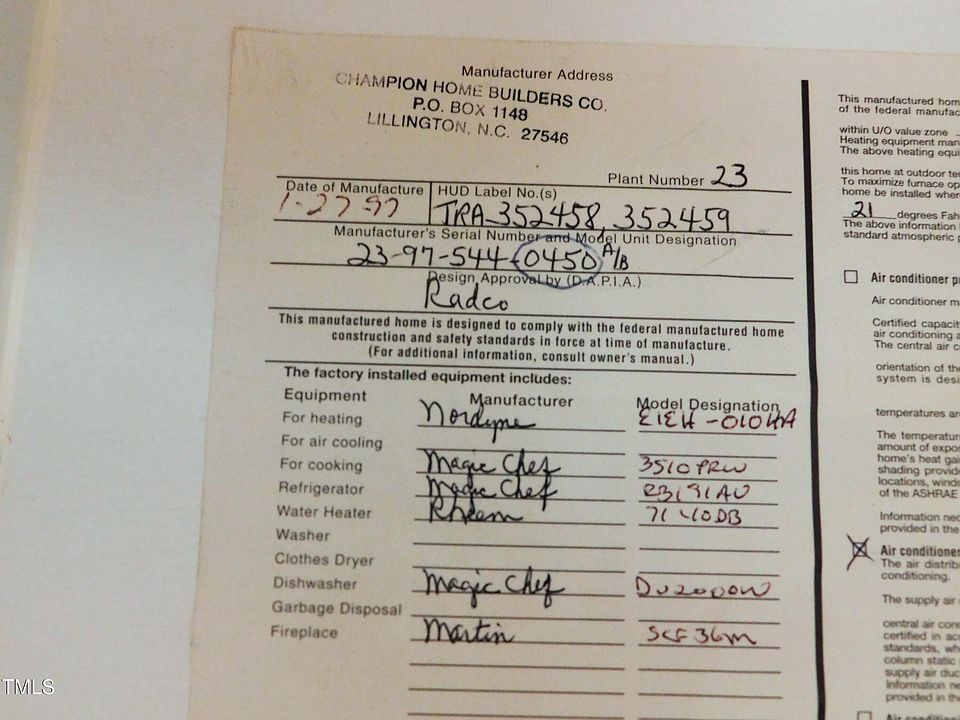 Manufacturer Address
CHAMPION HOME BUILDERS CO.
P.O. BOX 1148
LILLINGTON, N.C. 27546
Plant Number 23
Date of Manufacture
1-27-97
HUD Label No.(s)
TRA 352458, 352459
Manufacturer's Serial Number and Model Unit Designation
23-97-544-0450 A/B
Design Approval by (D.A.P.I.A.)
Radco
This manufactured home is designed to comply with the federal manufactured home
construction and safety standards in force at time of manufacture.
(For additional information, consult owner's manual.)
The factory installed equipment includes:
Equipment Manufacturer Model Designation
For heating Nordyne E1EH-010HA
For air cooling
For cooking Magic Chef 3510PRW
Refrigerator Magic Chef RB191AV
Water Heater Rheem 7140DB
Washer
Clothes Dryer
Dishwasher Magic Chef DU2000W
Garbage Disposal
Fireplace Martin SCF36m
This manufactured hom
of the federal manufac
within U/O value zone
Heating equipment man
The above heating equi
this home at outdoor te
To maximize furnace op
home be installed wher
21 degrees Fah
The above information
standard atmospheric p
Air conditioner p
Air conditioner m
Certified capacit
air conditioning a
The central air c
orientation of the
system is desi
temperatures ar
The temperature
amount of expos
home's heat gai
shading provide
locations, windo
of the ASHRAE
Information nec
provided in the
Air conditioner
The air distrib
conditioning.
The supply air
central air cond
certified in acc
standards, wh
column static
supply air duc
Information ne
provided in th
Air condition
TMLS